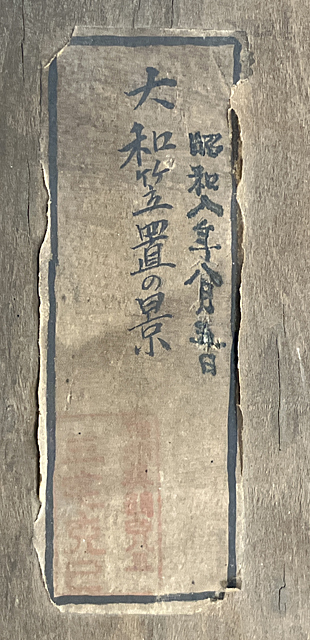 昭和八年八月五日
大和笠置の景